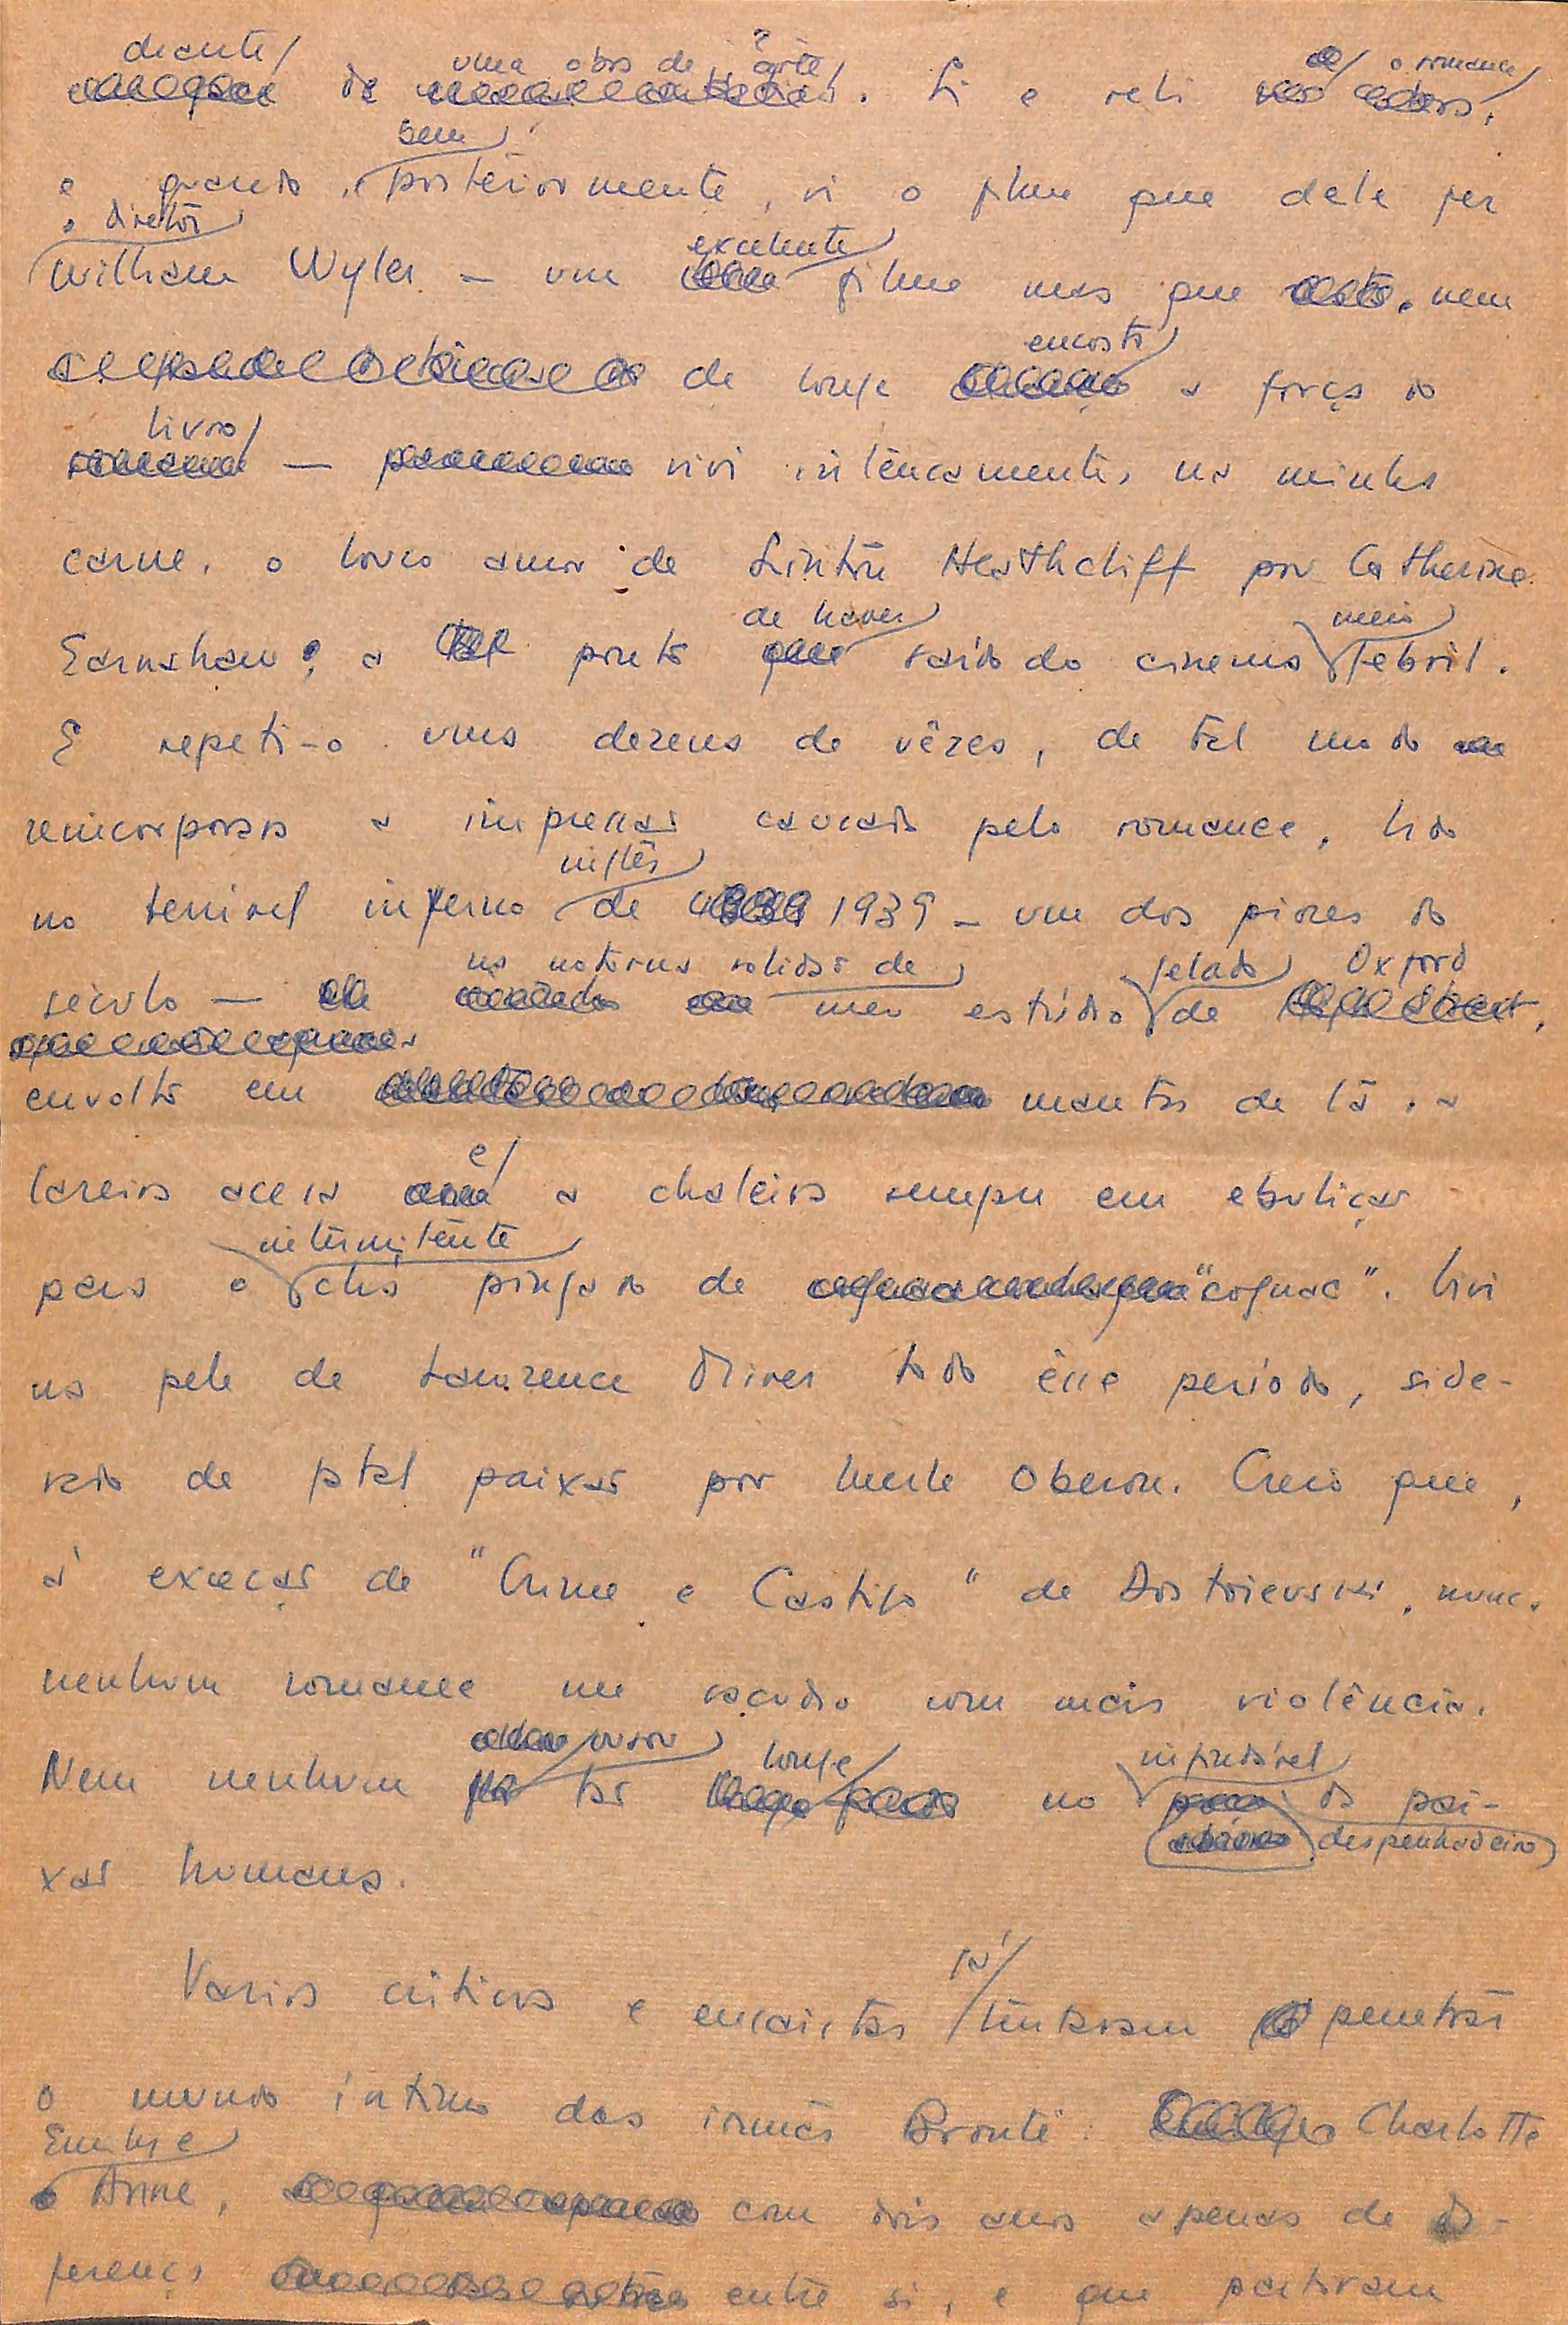 diante de uma obra de arte. Li e reli o romance,
e quando, bem posteriormente, vi o filme que dele fez
o diretor William Wyler — um excelente filme mas que nem
de longe encosta a força do
livro — vivi intensamente, na minha
carne, o louco amor de Linton Heathcliff por Catherine
Earnshaw; a ponto de haver saído do cinema meio febril.
E repeti-o umas dezenas de vêzes, de tal modo
reincorporara a impressão causada pelo romance, lido
no terrível inverno inglês de 1939 — um dos piores do
século — na noturna solidão de meu estúdio gelado de Oxford,
envolto em mantas de lã, a
lareira acesa e a chaleira sempre em ebulição
para o intermitente chá pingado de "cognac". Vivi
na pele de Lawrence Olivier todo êsse período, side-
rado de fatal paixão por Merle Oberon. Creio que,
à exceção de "Crime e Castigo" de Dostoievski, nunca
nenhum romance me sacudiu com mais violência.
Nem nenhum ousou ir tão longe no infindável despenhadeiro da pai-
xão humana.
Varios críticos e ensaístas já tentaram penetrar
o mundo íntimo das irmãs Brontë: Charlotte
Emily e Anne, com dois anos apenas de di-
ferença entre si, e que partiram